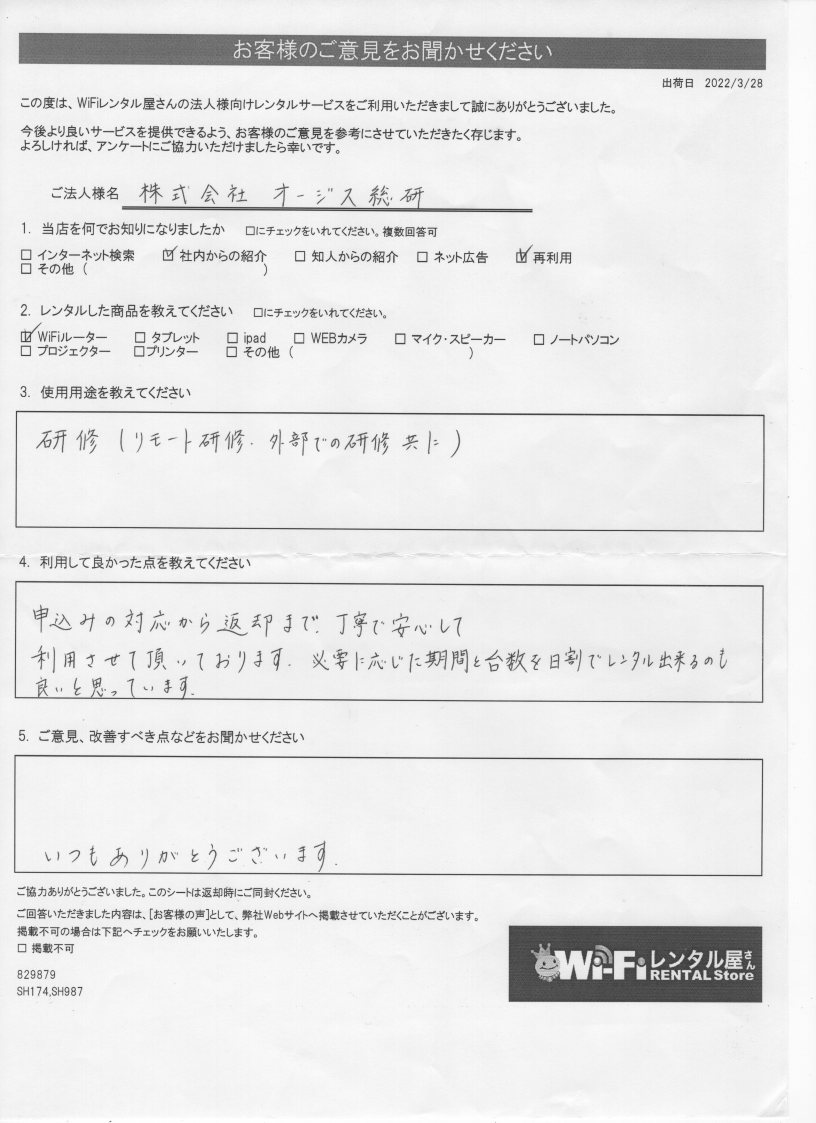 お客様のご意見をお聞かせください
出荷日 2022/3/28
この度は、WiFiレンタル屋さんの法人様向けレンタルサービスをご利用いただきまして誠にありがとうございました。
今後より良いサービスを提供できるよう、お客様のご意見を参考にさせていただきたく存じます。
よろしければ、アンケートにご協力いただけましたら幸いです。
ご法人様名 株式会社 オージス総研
1. 当店を何でお知りになりましたか □にチェックをいれてください。複数回答可
□ インターネット検索 ☑ 社内からの紹介 □ 知人からの紹介 □ ネット広告 ☑ 再利用
□ その他 ( )
2. レンタルした商品を教えてください □にチェックをいれてください。
☑ WiFiルーター □ タブレット □ ipad □ WEBカメラ □ マイク・スピーカー □ ノートパソコン
□ プロジェクター □プリンター □ その他 ( )
3. 使用用途を教えてください
研修 (リモート研修・外部での研修 共に)
4. 利用して良かった点を教えてください
申込みの対応から返却まで、丁寧で安心して
利用させて頂いております。必要に応じた期間と台数を日割でレンタル出来るのも
良いと思っています。
5. ご意見、改善すべき点などをお聞かせください
いつもありがとうございます。
ご協力ありがとうございました。このシートは返却時にご同封ください。
ご回答いただきました内容は、[お客様の声]として、弊社Webサイトへ掲載させていただくことがございます。
掲載不可の場合は下記へチェックをお願いいたします。
□ 掲載不可
829879
SH174,SH987
Wi-Fiレンタル屋さん
RENTAL Store